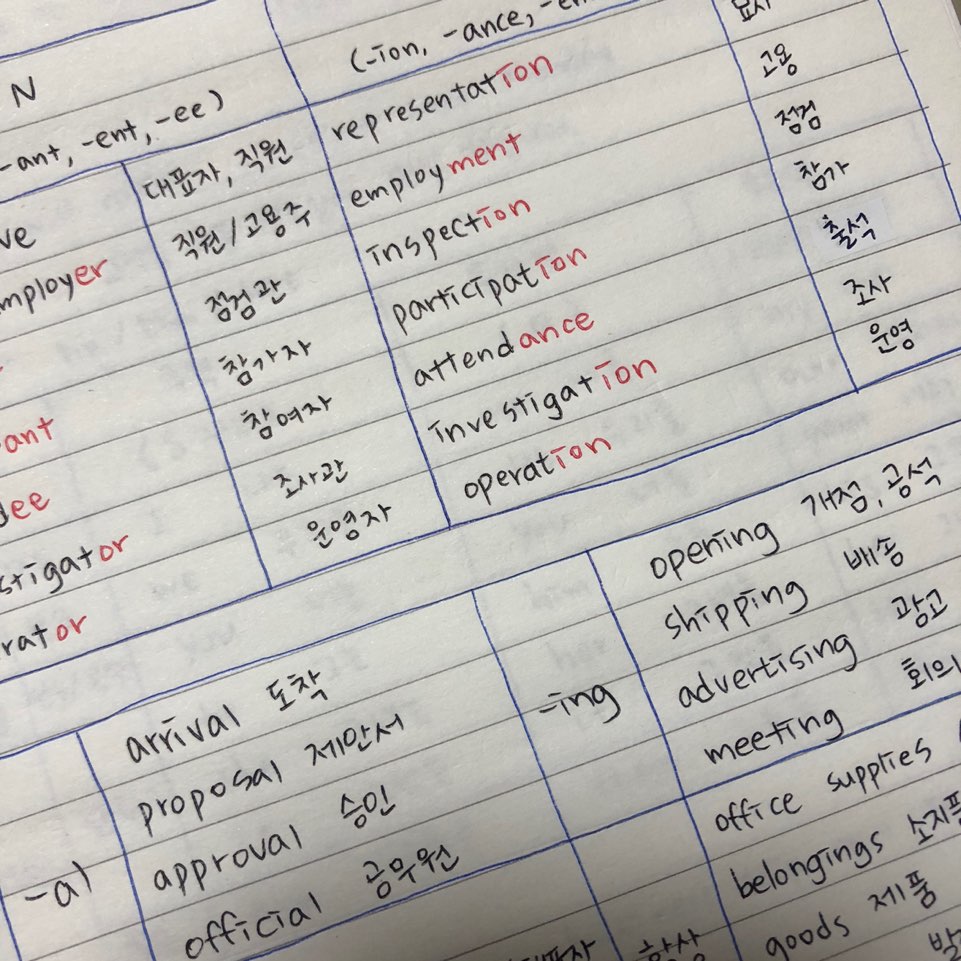 N (-ion, -ance, -en
-ant, -ent, -ee)
ve 대표자, 직원 representation 묘사
mployer 직원/고용주 employment 고용
점검관 inspection 점검
ant 참가자 participation 참가
dee 참여자 attendance 출석
stigator 조사관 investigation 조사
rator 운영자 operation 운영
-al
arrival 도착
proposal 제안서
approval 승인
official 공무원
-ing
opening 개점, 공석
shipping 배송
advertising 광고
meeting 회의
office supplies
belongings 소지품
goods 제품